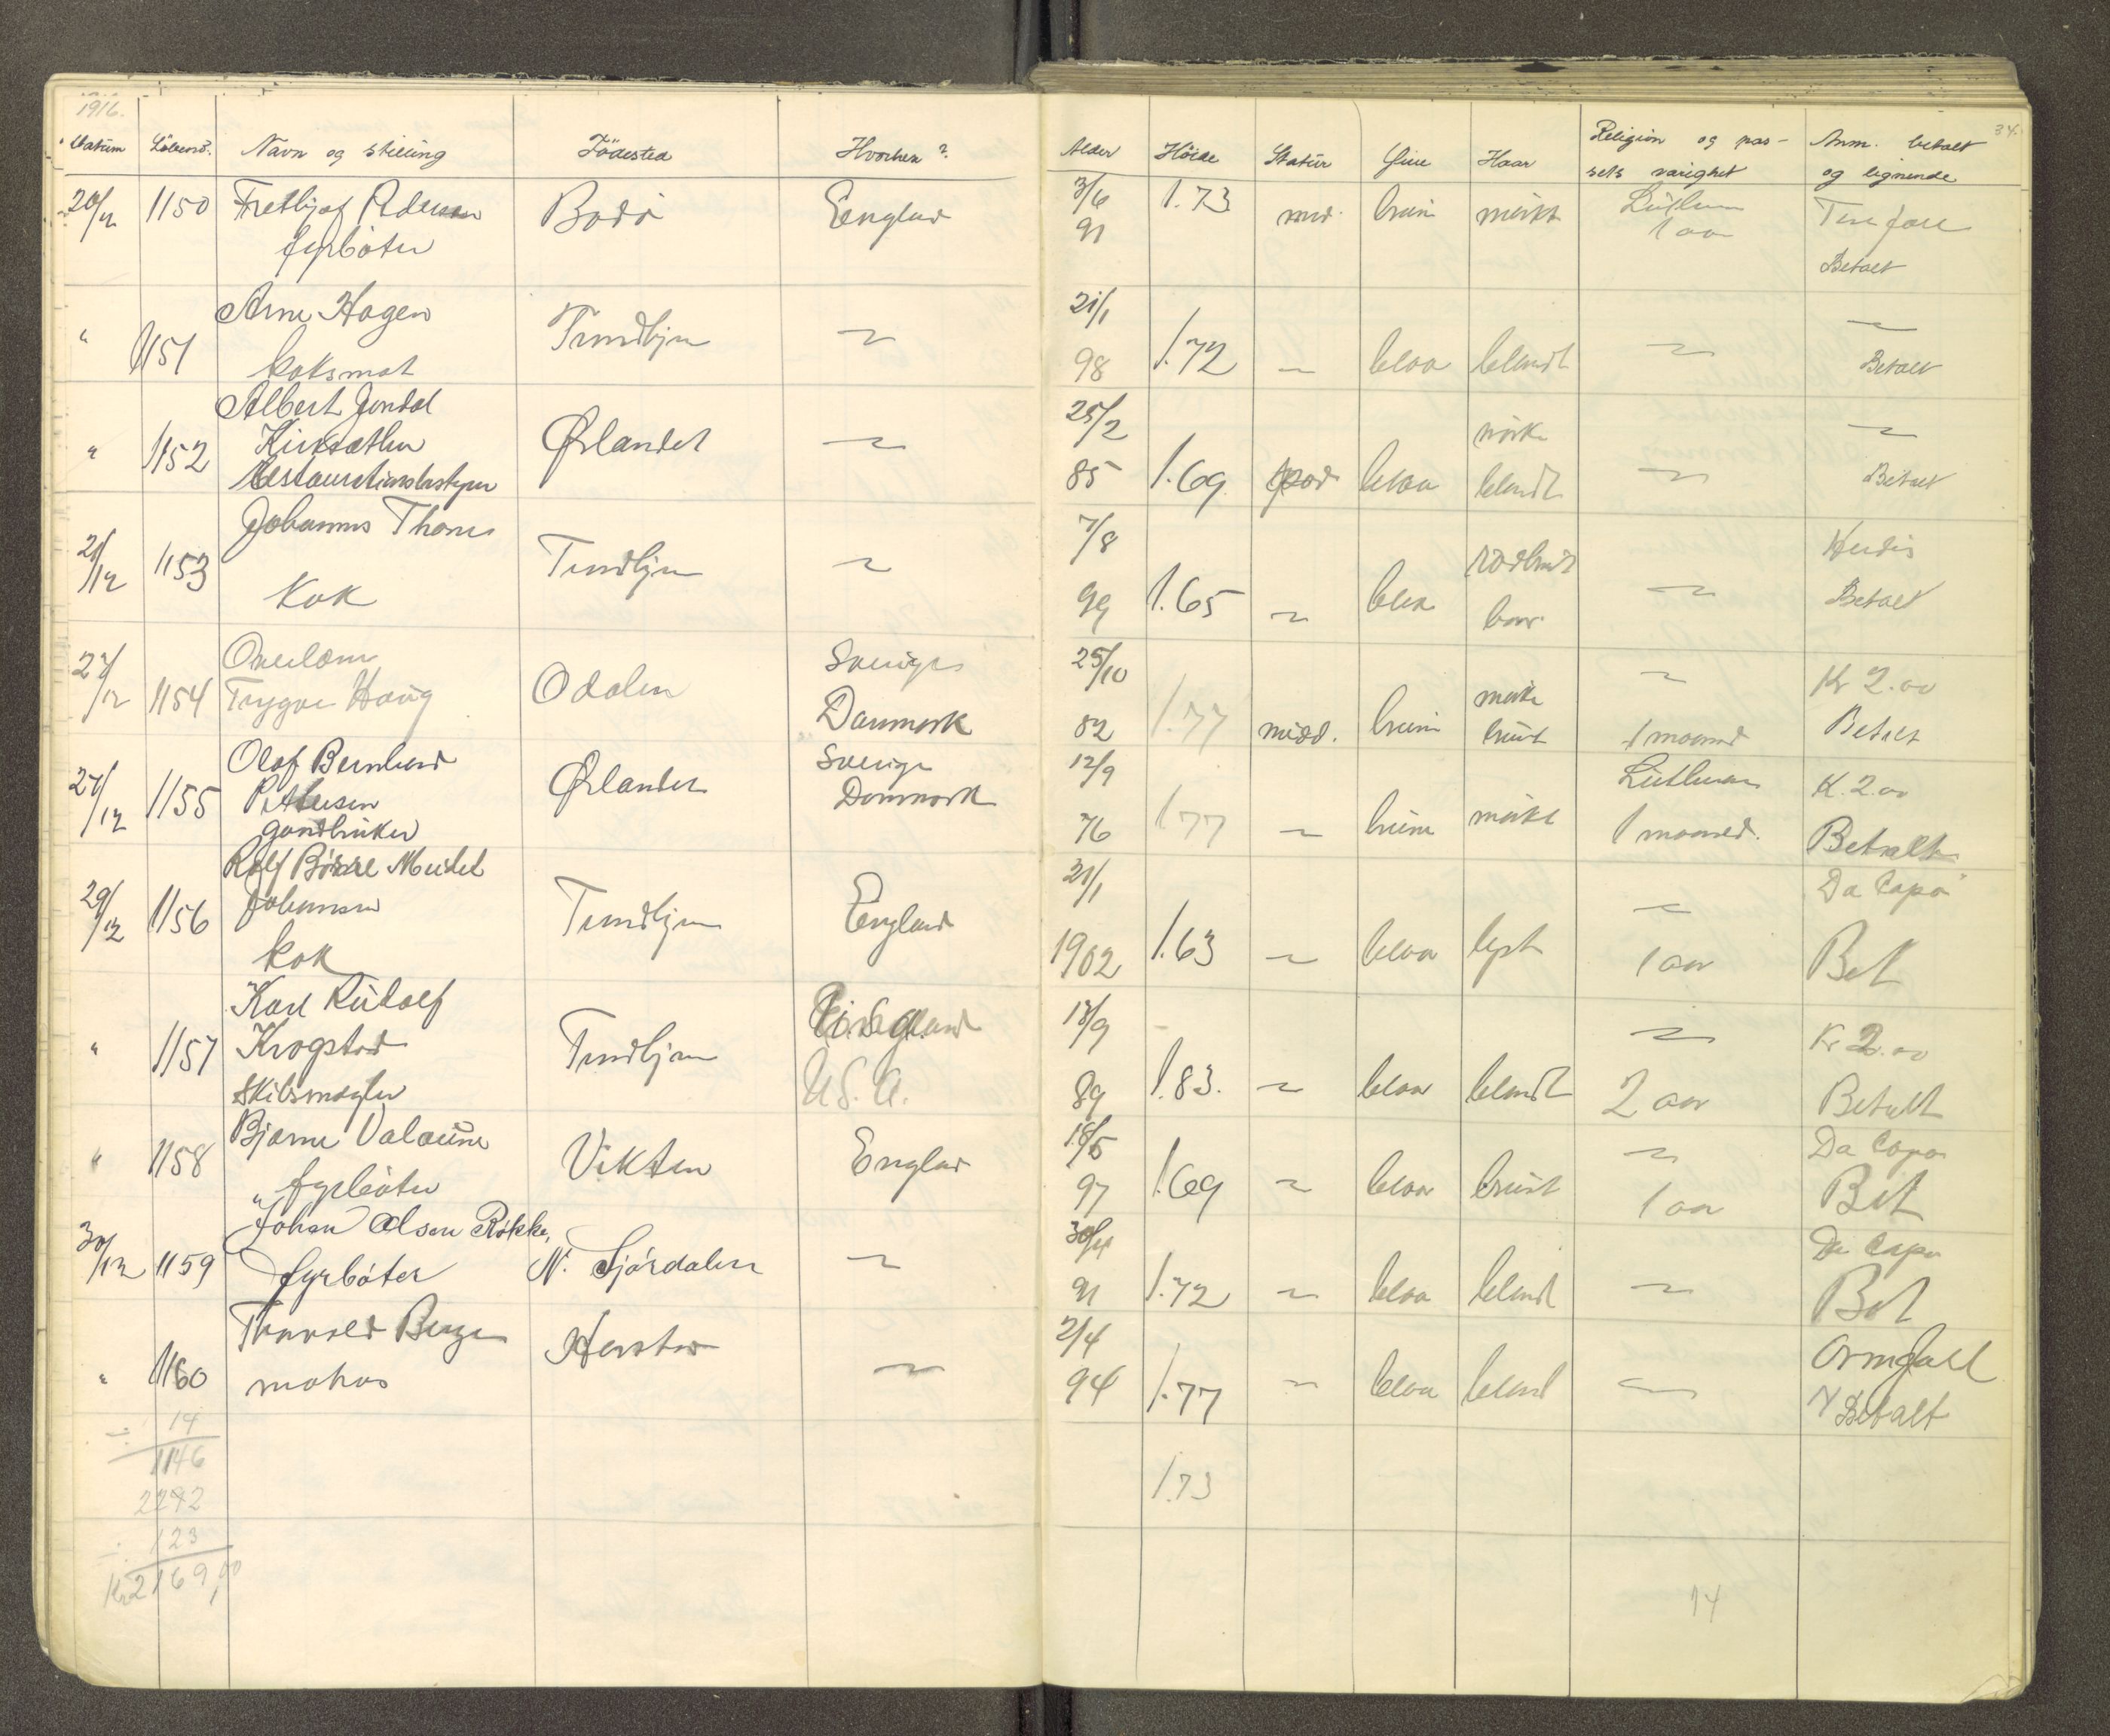 1916.
Datum Löbenr. Navn og stilling Födested Hvorhen?
Alder Höide Statur Öine Haar Religion og pas- Anm. betalt 34.
sets varighet og lignende
20/12 1150 Fretbjof Bodö England 3/6 1.73 mid. brun mörkt Luthera
fyrböter 91 1 aar
Betalt
" 1151 Arne Hagen Trondhjem ~ 21/1 ~
koksmat 98 1.72 ~ blaa blondt ~ Betalt
" 1152 Albert Jondal Ørlandet ~ 25/2 mörk ~
85 1.69 spad blaa blondt ~ Betalt
21/12 1153 Johannes Thones Trondhjem ~ 7/8 rödbrunt
Kok 99 1.65 ~ blaa haar ~ Betalt
27/12 1154 Overlærer Odalen Sverige 25/10 mörk ~ Kr 2.00
Trygve Haug Danmark 82 1.77 midd. brun brunt 1 maaned Betalt
27/12 1155 Olaf Bernhard Ørlandet Sverige 12/9 Luthersk K. 2.00
Petersen Danmark 76 1.77 ~ brune mörkt 1 maaned. Betalt
gaardbruker
29/12 1156 Rolf Meidel Trondhjem England 21/1 ~ Da Capo
Johansen 1902 1.63 ~ blaa lyst 1 aar Bet
kok
" 1157 Karl Rudolf Trondhjem England 18/9 ~ Kr 2.00
Krogstad U.S.A. 89 1.83. ~ blaa blondt 2 aar Betalt
Skibsmægler
" 1158 Bjarne Valaune Vikten England 18/5 ~ Da Capo
" fyrböter 97 1.69 ~ blaa brunt 1 aar Bet
30/12 1159 Johan Olsen Røkke, N. Stjördalen ~ 30/4 Da Capo
fyrböter 91 1.72 ~ blaa blond ~ Bet
" 1160 Thorvald Berge ~ 2/4
matros 94 1.77 ~ blaa blond ~ Betalt
÷ 14
1146
1.73
2292
÷ 123
Kr 2169,00
14